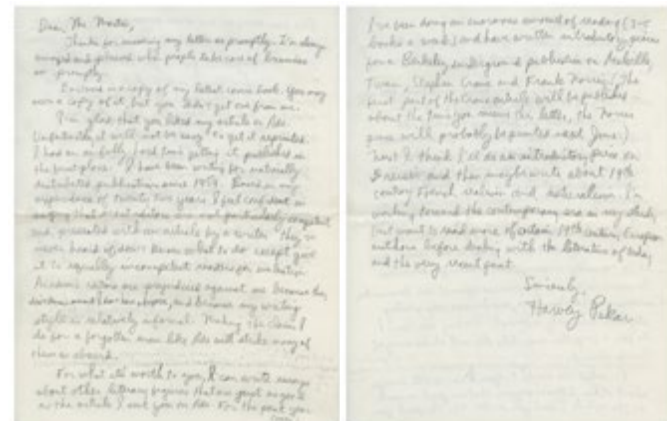 Dear Mr. Martin,
Thanks for answering my letter so promptly. I'm always
amazed and pleased when people take care of business
so promptly.
Enclosed is a copy of my latest comic book. You may
own a copy of it, but you didn't get one from me.
I'm glad that you liked my article on Ade.
Unfortunately it will not be easy to get it reprinted.
I had an awfully hard time getting it published in
the first place. I have been writing for nationally
distributed publications since 1959. Based on my
experience of twenty two years I feel confident in
saying that most editors are not particularly competent
and, presented with an article by a writer they've
never heard of, don't know what to do except give
it to equally incompetent readers for evaluation.
Academic editors are prejudiced against me because
and because my writing
style is relatively informal. Making the claims I
do for a forgotten man like Ade will strike many of
them as absurd.
For what it's worth to you, I can write essays
about other literary figures that are just as good
as the article I sent you on Ade. For the past year
I've been doing an enormous amount of reading (3-5
books a week) and have written introductory pieces
for a Berkeley underground publication on Melville,
Twain, Stephen Crane and Frank Norris. (The
first part of the Crane article will be published
about the time you receive this letter, the Norris
piece will probably be printed next June.)
Next I think I'll do an introductory piece on
Dreiser and then maybe write about 19th
century French realism and naturalism. I'm
working toward the contemporary era in my study
but want to read more of certain 19th century European
authors before dealing with the literature of today
and the very recent past.
Sincerely,
Harvey Pekar